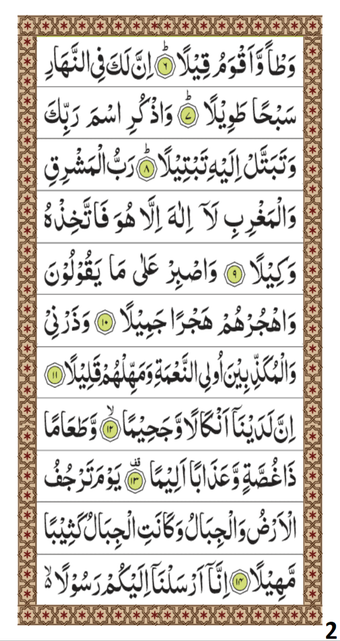 وَطْاً وَّاَقْوَمُ قِيْلًا ۶ؕ اِنَّ لَكَ فِى النَّهَارِ
سَبْحًا طَوِيْلًا ۷ؕ وَاذْكُرِ اسْمَ رَبِّكَ
وَتَبَتَّلْ اِلَيْهِ تَبْتِيْلًا ۸ؕ رَبُّ الْمَشْرِقِ
وَالْمَغْرِبِ لَاۤ اِلٰهَ اِلَّا هُوَ فَاتَّخِذْهُ
وَكِيْلًا ۹ وَاصْبِرْ عَلٰى مَا يَقُوْلُوْنَ
وَاهْجُرْهُمْ هَجْرًا جَمِيْلًا ۱۰ وَذَرْنِىْ
وَالْمُكَذِّبِيْنَ اُولِى النَّعْمَةِ وَمَهِّلْهُمْ قَلِيْلًا ۱۱
اِنَّ لَدَيْنَاۤ اَنْكَالًا وَّجَحِيْمًا ۱۲ۙ وَّطَعَامًا
ذَا غُصَّةٍ وَّعَذَابًا اَلِيْمًا ۱۳ۗ يَوْمَ تَرْجُفُ
الْاَرْضُ وَالْجِبَالُ وَكَانَتِ الْجِبَالُ كَثِيْبًا
مَّهِيْلًا ۱۴ اِنَّاۤ اَرْسَلْنَاۤ اِلَيْكُمْ رَسُوْلًا ۙ
2